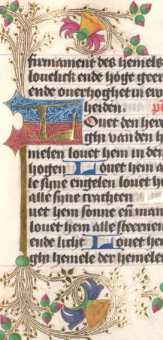 firmament des hemels
louelick ende hoge geer
ende ouerhoghet in ew
heiden.
Out den here
ghi van den h
melen louet hem in den
hogen Louet hem al
le syne engelen louet h
alle syne crachten
uet hem sonne en̄ man
louet hem alle sterren
ende licht Louet he
ghi hemele der hemele